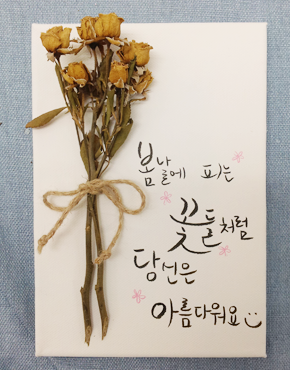 봄날에 피는
꽃들처럼
당신은
아름다워요